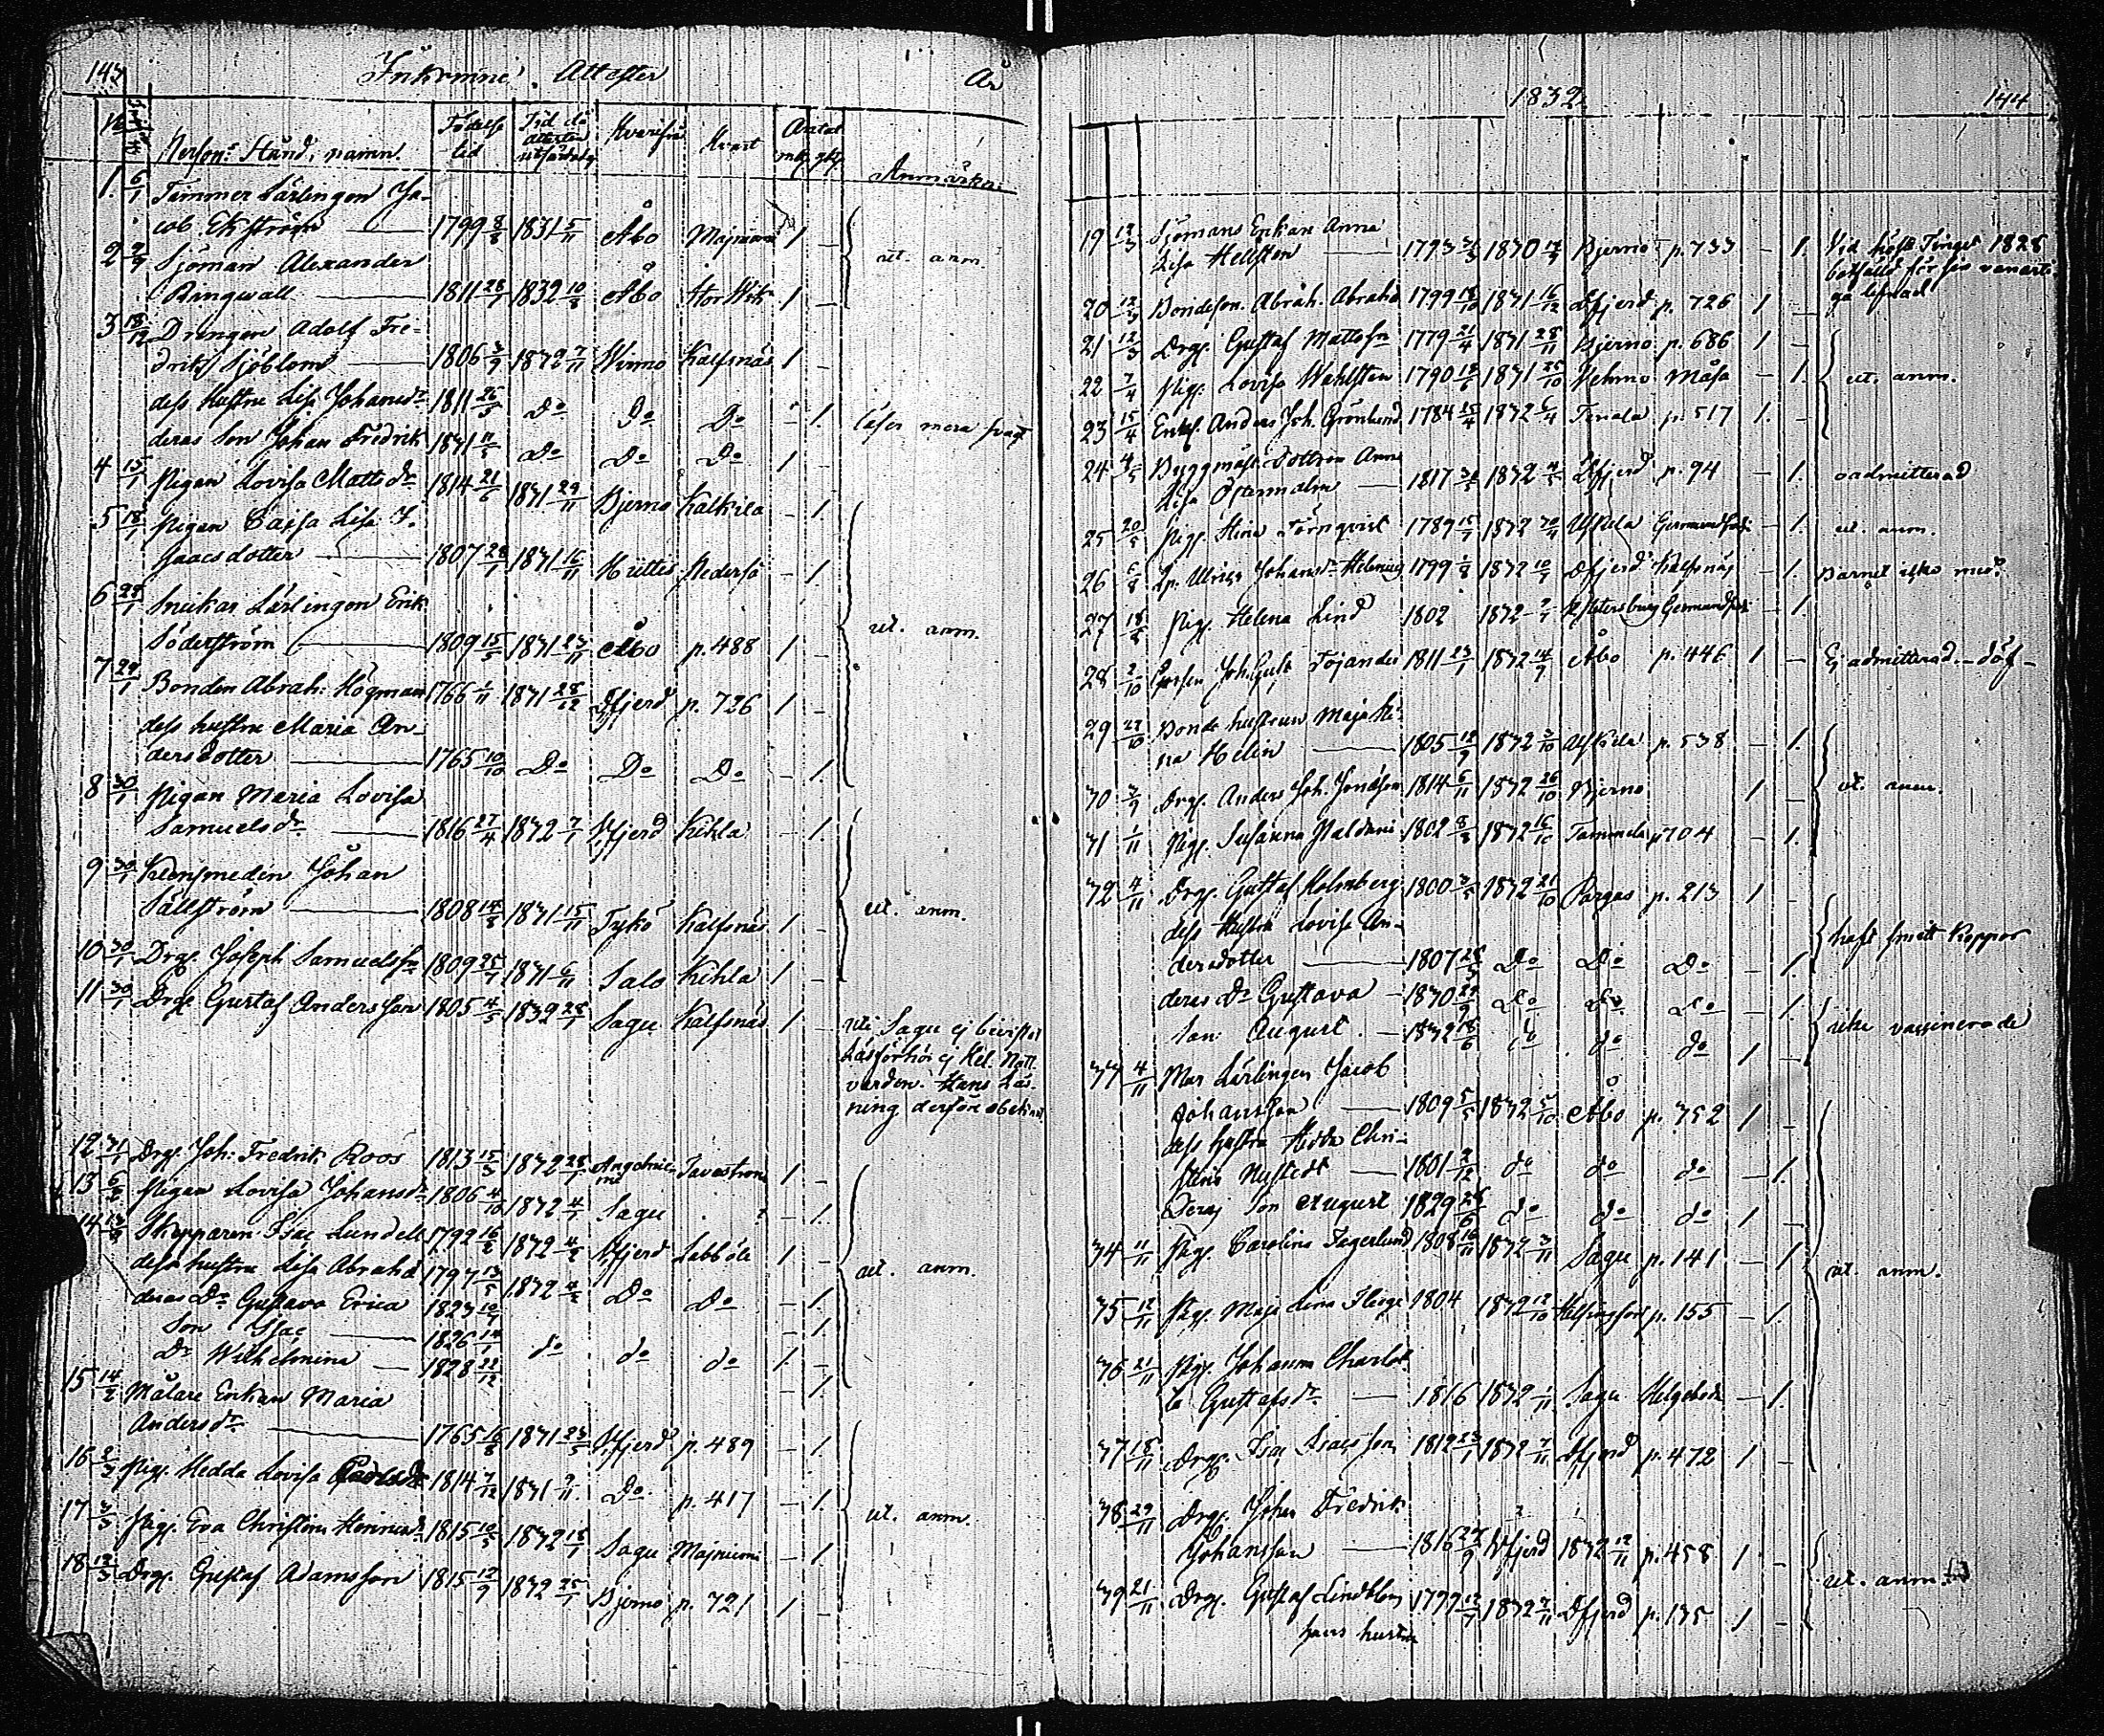 143 Inkomne Attester År
N
Person: Stånd, namn. Födelse tid Tid då attesten utfärdats Hvarifrån Hvart Antal mk. qk. Anmärkn:
1. 6/1 Timmer Lärlingen Ja-
cob Ekström 1799 8/8 1831 5/11 Åbo Majniemi 1 –
2 9/9 Sjöman Alexander ut. anm.
Ringwall 1811 28/7 1832 10/8 Åbo StorWik 1 –
3 18/12 Drengen Adolf Fre-
driks Sjöblom 1806 3/9 1832 7/11 Wirmo Kalfsnäs 1 –
dess Hustru Lisa Johansdr 1811 26/5 Do Do Do – 1. läser mera svagt
deras Son Johan Fredrik 1831 11/5 Do Do Do 1 –
4 15/1 Pigan Lovisa Mattsdr 1814 21/6 1831 29/11 Bjerno Kalkila – 1.
5 18/1 Pigan Cajsa Lisa I-
saacsdotter 1807 28/7 1831 16/11 Hiittis Nedersö – 1.
6 28/1 Snickar Lärlingen Erik
Söderström 1809 15/5 1831 23/11 Åbo p. 488 1 – ut. anm.
7 29/1 Bonden Abrah: Högman 1766 1/11 1831 28/12 Kfjerd p. 726 1 –
dess hustru Maria An-
dersdotter 1765 10/10 Do Do Do – 1.
8 30/1 Pigan Maria Lovisa
Samuelsdr 1816 27/4 1832 7/1 Kfjerd Kihla – 1.
9 30/1 Klensmeden Johan
Sällström 1808 14/8 1831 15/11 Tykö Kalfsnäs 1 – ut. anm.
10 30/1 Drg. Joseph Samuelsson 1809 25/7 1831 6/11 Salo Kihla 1 –
11 30/1 Drg Gustaf Andersson 1805 4/5 1832 28/1 Sagu Kalfsnäs 1 – uti Sagu ej bevistat
Läsförhör ej Hel. Natt-
varden. Hans Läs-
ning derföre obekant
12 31/1 Drg. Joh: Fredrik Roos 1813 15/3 1832 28/1 Angelnie- 1 –
mi
13 6/2 Pigan Lovisa Johansdr 1806 4/10 1832 4/1 Sagu – 1.
14 13/2 Skepparen Isac Lundell 1792 16/2 1832 4/2 Kfjerd Labböle 1 –
dess hustru Lisa Abrahd 1797 13/5 1832 4/2 Do Do – 1. ut. anm.
deras Dr Gustava Erica 1823 10/7 – 1.
Son Isac 1826 14/1 do do do 1. –
Dr Wilhelmina 1828 22/12 – 1.
15 14/2 Målare Enkan Maria
Andersdr 1765 16/8 1831 23/5 Kfjerd p. 489 – 1.
16 2/3 Pig. Hedda Lovisa 1814 7/12 1831 9/11 Do p. 417 – 1.
17 3/3 Pig. Eva Christina 1815 10/5 1832 18/1 Sagu Majniemi – 1. ut. anm.
18 12/3 Drg. Gustaf Adamsson 1815 12/9 1832 25/1 Bjerno p. 721 1 –
1832 144
19 12/3 Sjömans Enkan Anna
Lisa Hellsten 1793 1830 Bjerno p. 733 – 1. Vid höst Tinget 1828
botfälld för sin vanarti-
ga lefnad
20 12/3 Bondeson. Abrah. Abrahs 1799 18/10 1831 16/12 Kfjerd p. 726 1 –
21 12/3 Drg. Gustaf Mattsson 1779 21/4 1831 28/11 Bjerno p. 686 1 –
22 7/4 Pig. Lovisa Wahlsten 1790 1831 25/10 Vehmo Måsa – 1. ut. anm.
23 15/4 Enkl. Anders Joh. Grönlund 1784 15/4 1832 6/4 Tenala p. 517 1. –
24 Byggmäst: Dottren Anna
Lisa Östermalm 1817 1832 Kfjerd p. 94 – 1. oadmitterad
25 20/5 Pig. Stina Törnqvist 1789 15/7 1832 30/4 Uskela – 1. ut. anm.
26 6/8 Ulrica Johansdr 1799 1832 Kfjerd Kalfsnäs – 1. Barnet icke med
27 Pig. Helena Lind 1802 1832 Petersburg – 1.
28 2/10 Joh. Gust. Töjander 1811 23/1 1832 14/9 Åbo p. 446 1 – Ej admitterad – döf –
29 27/10 Bonde hustrun Maja Sti-
na Helin 1805 12/9 1832 3/10 Uskela p. 538 – 1.
30 Drg. Anders Joh. Jonasson 1814 6/11 1832 26/10 Bjerno 1 – ut. anm.
31 1/11 Pig. Susanna 1802 8/8 1832 Tammela p. 704 – 1.
32 4/11 Drg. Gustaf Holmberg 1800 3/5 1832 21/10 Pargas p. 213 1 –
dess Hustru Lovisa An- haft smitt koppor
dersdotter 1807 Do Do Do – 1.
deras Dr Gustava 1830 29/9 Do Do Do – 1. icke vaccinerade
Son August 1832 18/6 do do do 1 –
33 4/11 Mur Lärlingen Jacob
Johansson 1809 5/5 1832 5/10 Åbo p. 752 1 –
dess hustru Hedda Chri-
stina Nystedt 1801 2/12 do do do – 1.
Deras Son August 1829 28/6 do do do 1 –
34 11/11 Pig. Carolina Fagerlund 1808 16/11 1832 3/11 Sagu p. 141 – 1. ut. anm.
35 12/11 Pig. Maja Lena 1804 1832 12/10 Helsingfors p. 155 – 1.
36 21/11 Pig. Johanna Charlot-
ta Gustafsdr 1816 1832 1/11 Sagu Helgeboda – 1.
37 18/11 Drg. Isac Isacsson 1812 23/1 1832 7/11 Kfjerd p. 472 1 –
38 29/11 Drg. Johan Fredrik
Johansson 1816 27/9 Kfjerd 1832 12/11 p. 458 1 –
39 21/11 Drg. Gustaf Lindblom 1799 12/7 1832 7/11 Kfjerd p. 135 1 – ut. anm.
hans hustru